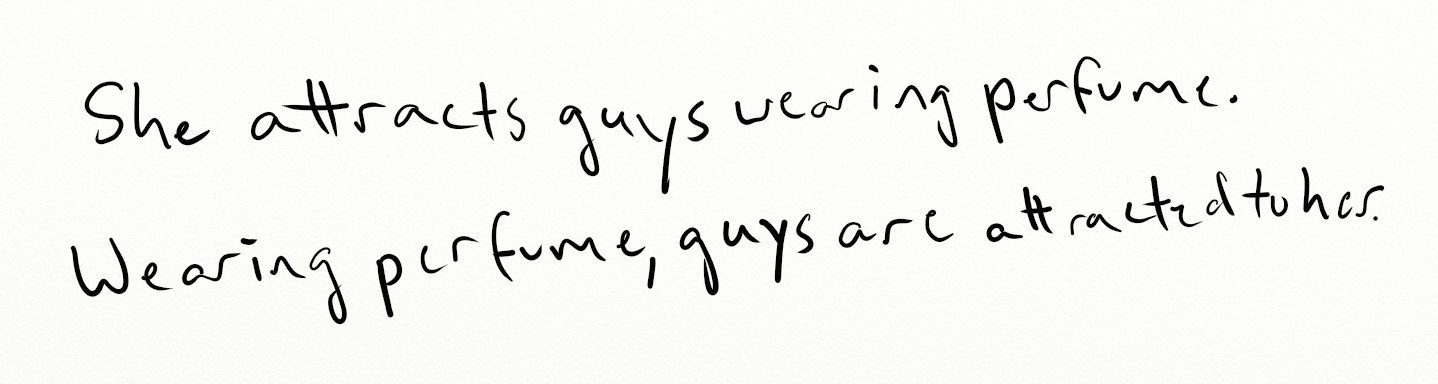 She attracts guys wearing perfume.
Wearing perfume, guys are attracted to her.